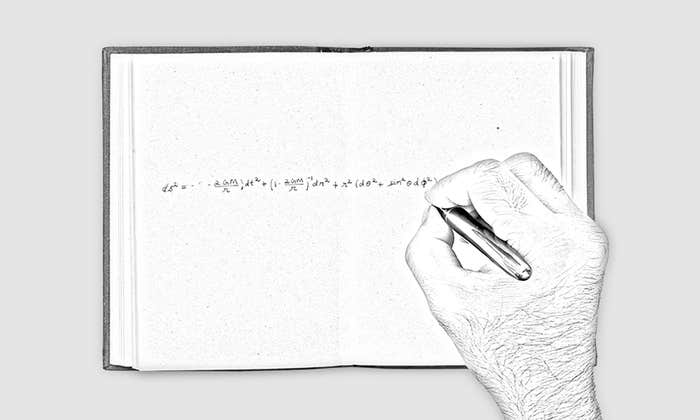 ds² = - 2GM/r) dt² + (1 - 2GM/r)⁻¹ dr² + r² (dθ² + sin²θ dφ²)